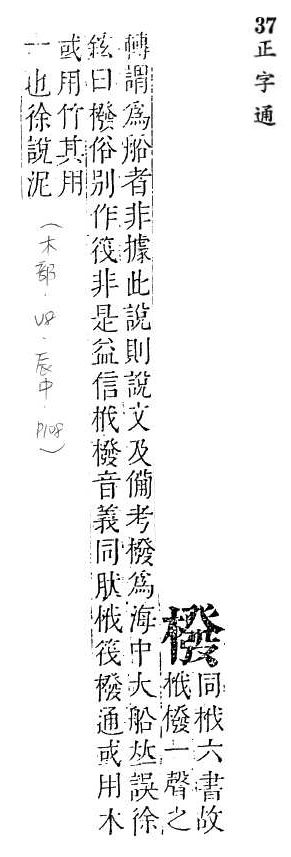 37正字通
橃
同栰六書故
栰橃一聲之
轉謂爲船者非據此說則說文及備考橃爲海中大船𠀤誤徐
鉉曰橃俗别作筏非是益信栰橃音義同肰栰筏橃通或用木
或用竹其用
一也徐說泥
(木部.V8.辰中.P108)